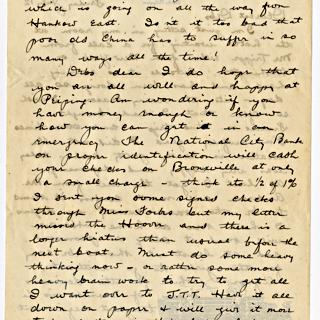 which is going on all the way from
Hankow East. Isn't it too bad that
poor old China has to suffer in so
many ways all the time!
Debs dear I do hope that
you are all well and happy at
Peiping. Am wondering if you
have money enough or know
how you can get it in an
emergency. The National City Bank
on proper identification will cash
your checks on Bronxville at only
a small charge - think its 1/2 of 1%
I sent you some signed checks
through Miss Forbs but my letter
missed the Hoover and there is a
longer hiatus than usual before the
next boat. Must do some heavy
thinking now - or rather some more
heavy brain work to try to get all
I want over to J.T.T. Have it all
down on paper & will give it more